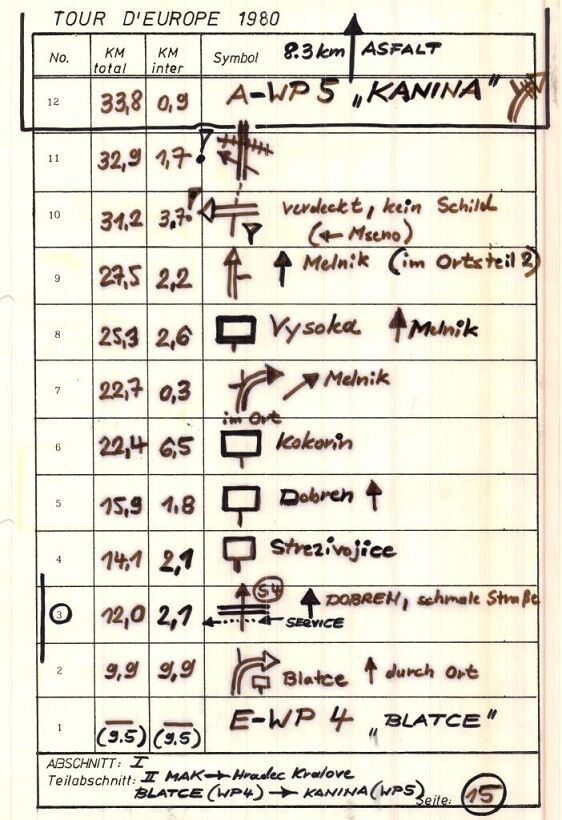 TOUR D'EUROPE 1980
No. KM total KM inter Symbol 8.3km ASFALT
12 33,8 0,9 A-WP5 „KANINA"
11 32,9 1,7 !
10 31,2 3,7 ! verdeckt, kein Schild
(← Mseno)
9 27,5 2,2 ↑ Melnik (im Ortsteil 2)
8 25,3 2,6 Vysoka ↑ Melnik
7 22,7 0,3 ↗ Melnik
im Ort
6 22,4 6,5 Kokorin
5 15,9 1.8 Dobren ↑
4 14,1 2,1 Strezivojice
3 12,0 2,1 S4 ↑ DOBREN, schmale Straße
SERVICE
2 9,9 9,9 Blatce ↑ durch Ort
1 — (9.5) — (9,5) E-WP 4 „BLATCE"
ABSCHNITT: I
Teilabschnitt: II MAK → Hradec Kralove
BLATCE (WP4) → KANINA (WP5)
Seite: 15